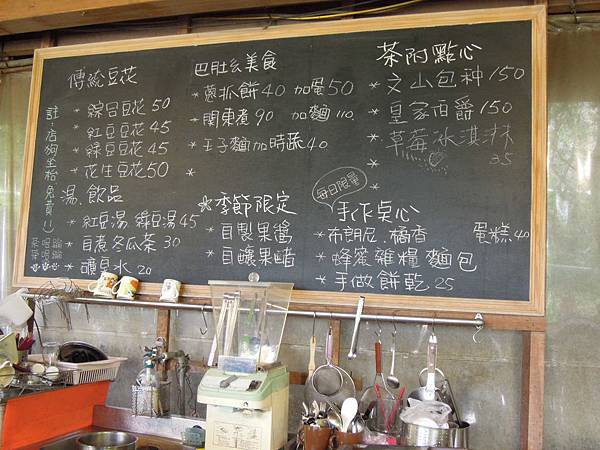 傳統豆花
* 綜合豆花 50
* 紅豆豆花 45
* 綠豆豆花 45
* 花生豆花 50
註:店狗坐枱免費!!
湯.飲品
* 紅豆湯 綠豆湯 45
* 自煮冬瓜茶 30
* 礦泉水 20
巴肚幺美食
* 蔥抓餅 40 加蛋 50
* 關東煮 90 加麵 110
* 王子麵加時蔬 40
*
季節限定
* 自製果醬
* 自釀果醋
茶附點心
* 文山包种 150
* 皇家伯爵 150
* 草莓冰淇淋
35
*
每日限量
手作点心
* 布朗尼.橘香 蛋糕 40
* 蜂蜜雜糧麵包
* 手做餅乾 25